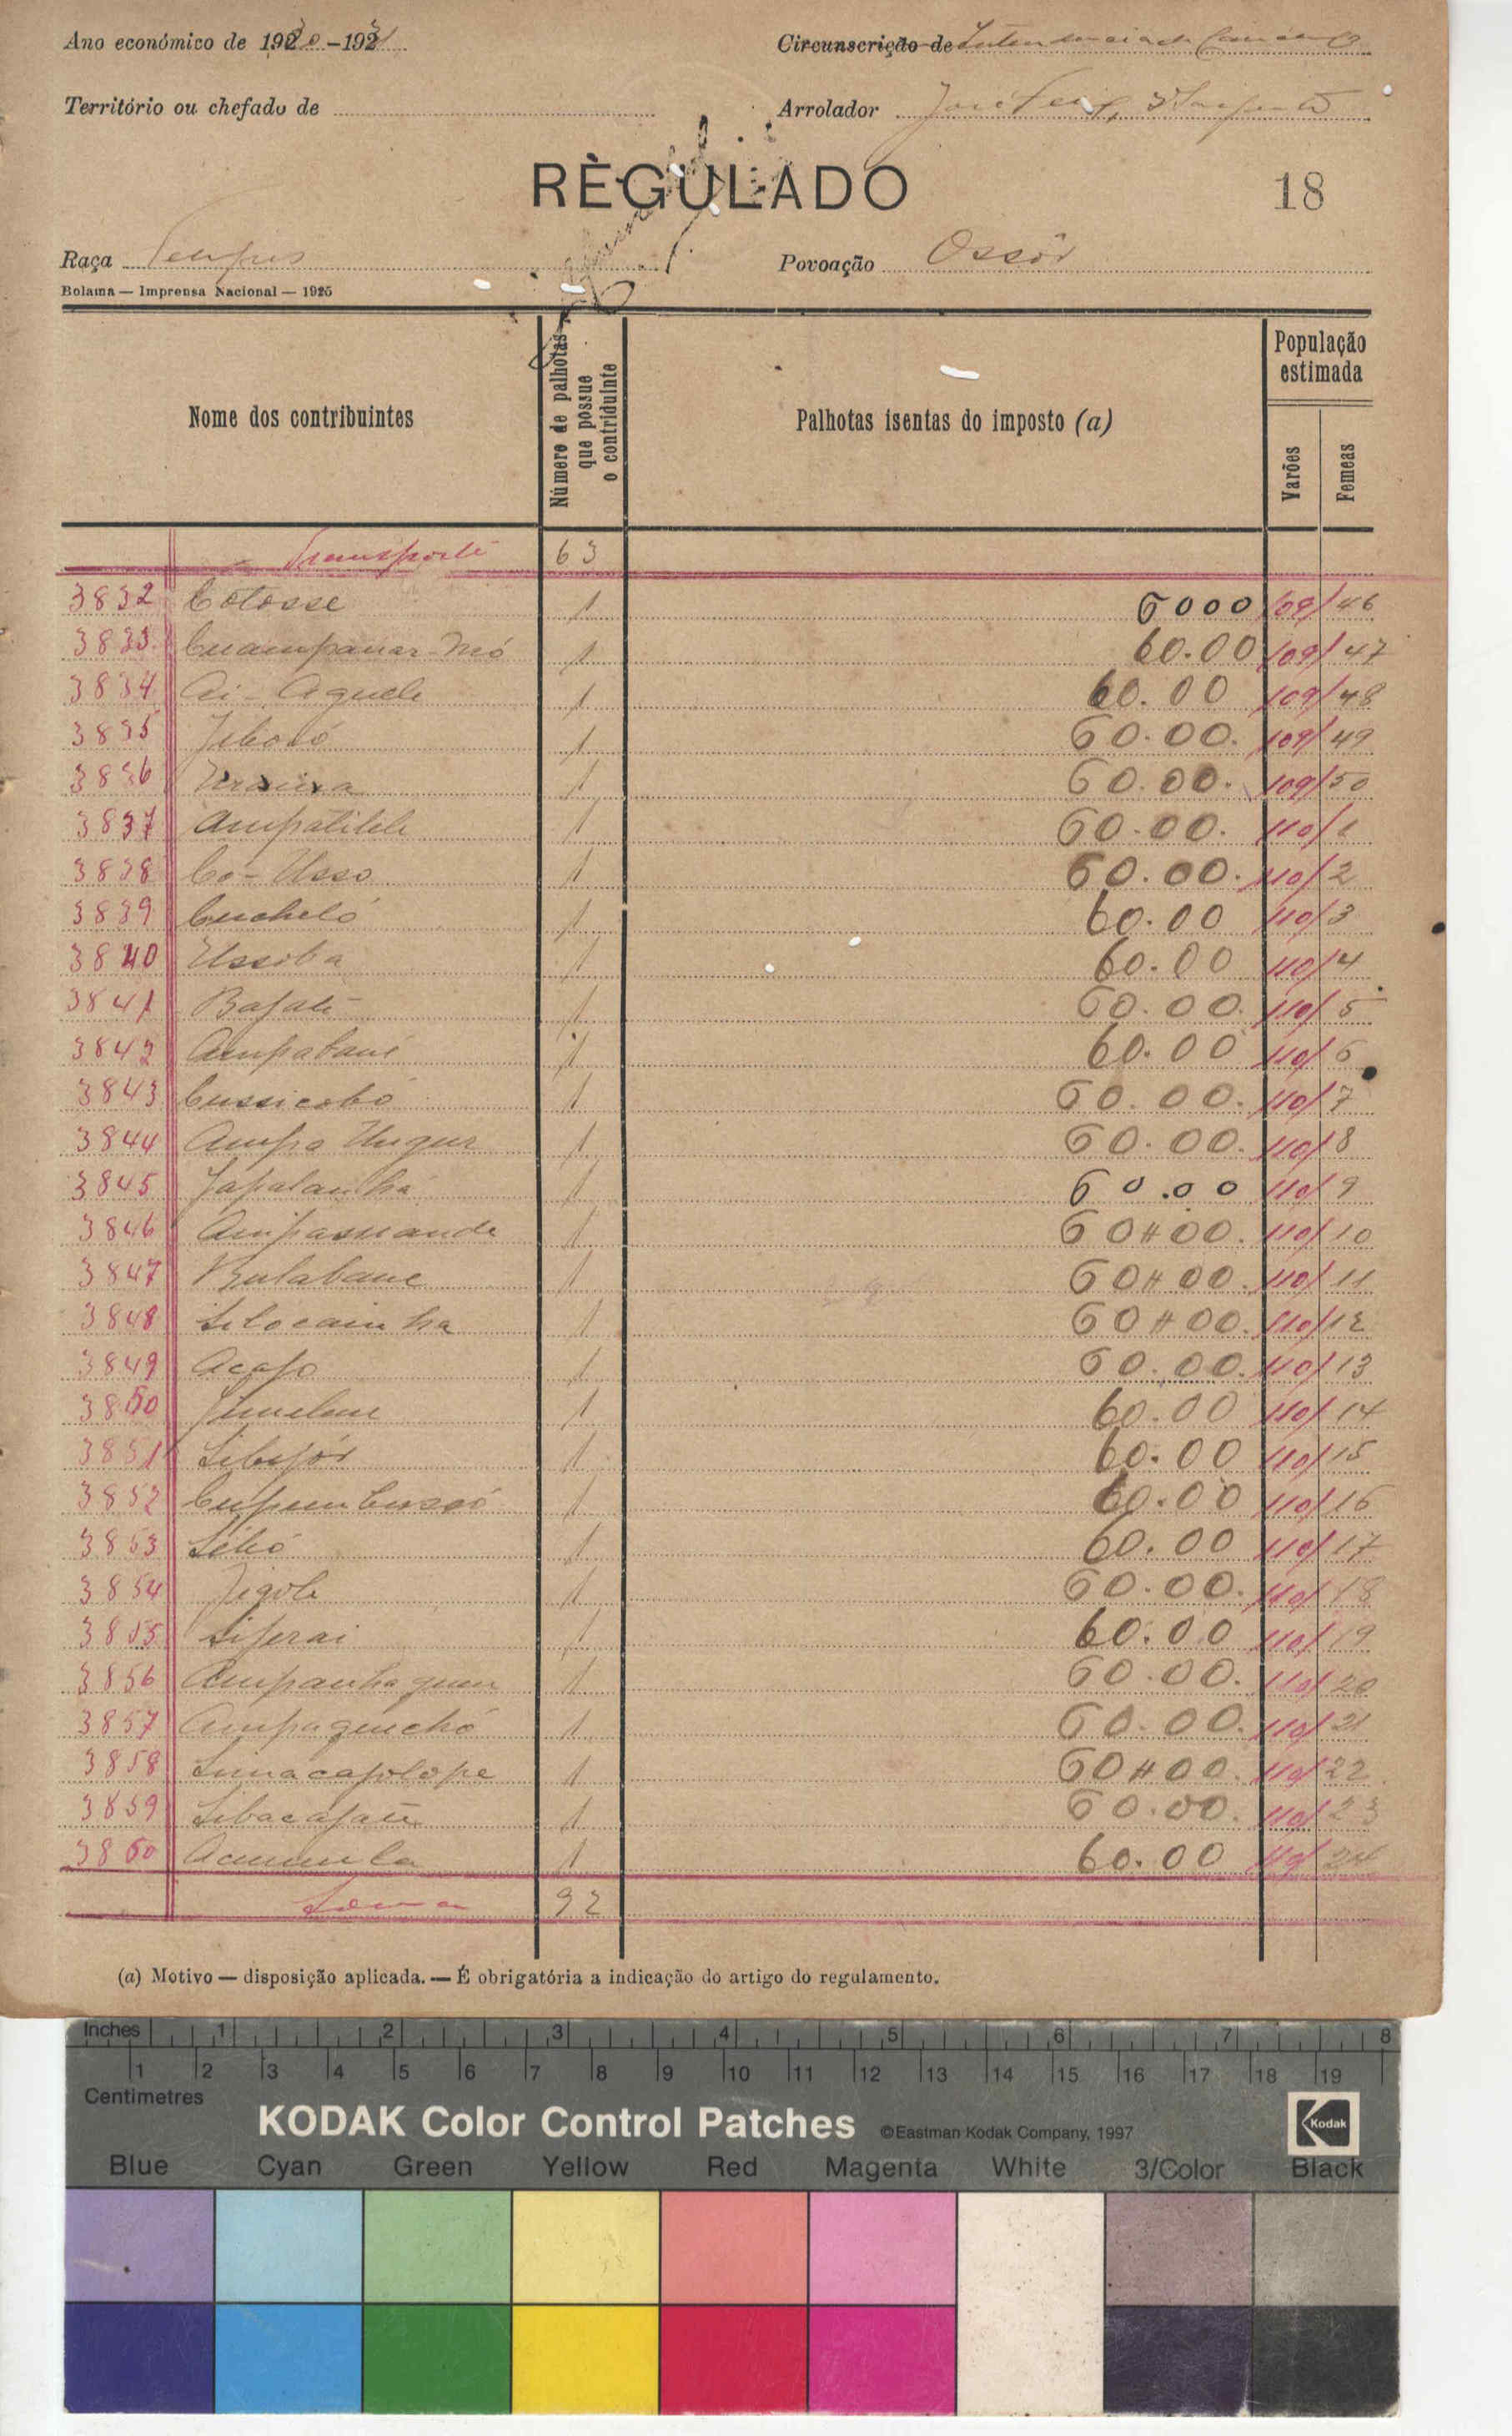 Ano económico de 1930-1931
Circunscrição de Intendencia de
Território ou chefado de
Arrolador José 2º Sargento
RÈGULADO
18
Raça Felupes
Povoação Ossôr
Bolama — Imprensa Nacional — 1925
Nome dos contribuintes
Número de palhotas que possue o contriduinte
Palhotas isentas do imposto (a)
População estimada
Varões
Femeas
Transporte 63
3832 Cotosse 1 6000 109/46
3833 Cuampanar-mó 1 60.00 109/47
3834 Ai-Aquele 1 60.00 109/48
3835 Jibosó 1 60.00. 109/49
3836 1 60.00. 109/50
3837 Ampatilele 1 60.00. 110/1
3838 Co-Usso 1 60.00. 110/2
3839 Cucheló 1 60.00 110/3
3840 Ussoba 1 60.00 110/4
3841 Bafate 1 60.00. 110/5
3842 Ampabané 1 60.00 110/6
3843 Cussicobó 1 60.00. 110/7
3844 Ampa Ungur 1 60.00. 110/8
3845 Japalanha 1 60.00 110/9
3846 Ampassuande 1 60#00. 110/10
3847 Bulabane 1 60#00. 110/11
3848 Silocainha 1 60#00. 110/12
3849 Acapo 1 60.00. 110/13
3850 1 60.00 110/14
3851 Sibefór 1 60.00 110/15
3852 1 60.00 110/16
3853 Sibó 1 60.00 110/17
3854 Jigole 1 60.00. 110/18
3855 Siferai 1 60.00 110/19
3856 Ampanhaquen 1 60.00. 110/20
3857 Ampaguchó 1 60.00. 110/21
3858 Simacapolope 1 60#00. 110/22
3859 Sibacafate 1 60.00. 110/23
3860 1 60.00 110/24
Soma 92
(a) Motivo — disposição aplicada. — É obrigatória a indicação do artigo do regulamento.
Inches 1 2 3 4 5 6 7 8
1 2 3 4 5 6 7 8 9 10 11 12 13 14 15 16 17 18 19
Centimetres
KODAK Color Control Patches ©Eastman Kodak Company, 1997 Kodak
Blue Cyan Green Yellow Red Magenta White 3/Color Black